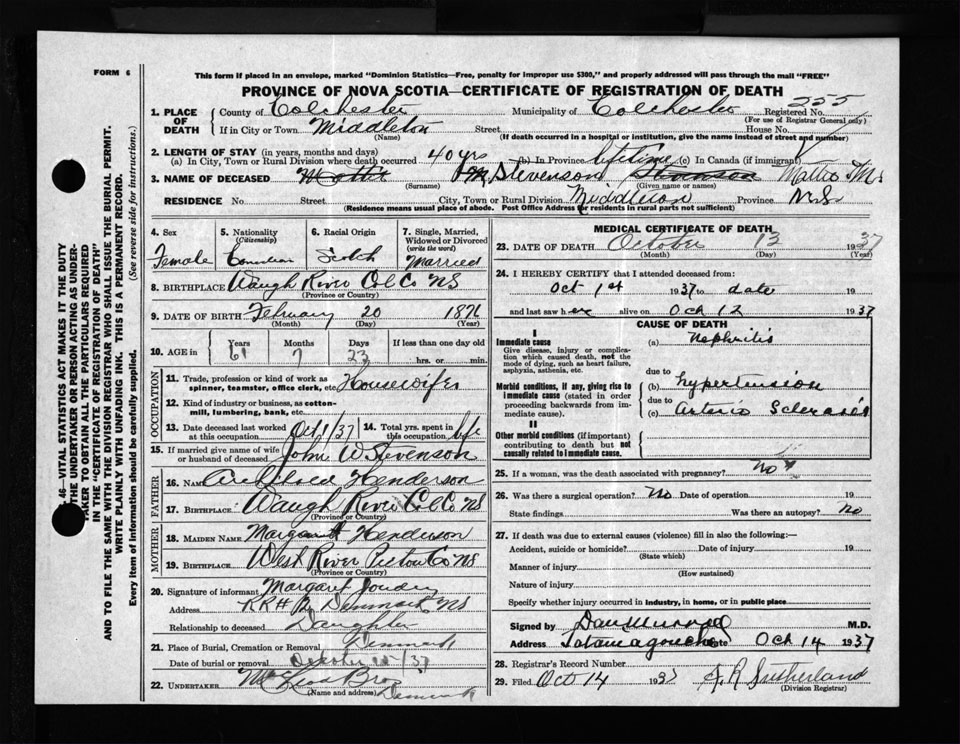 FORM 6
This form if placed in an envelope, marked "Dominion Statistics—Free, penalty for improper use $300," and properly addressed will pass through the mail "FREE"
PROVINCE OF NOVA SCOTIA—CERTIFICATE OF REGISTRATION OF DEATH
1. PLACE OF DEATH County of Colchester Municipality of Colchester Registered No. 255
(For use of Registrar General only)
If in City or Town Middleton Street House No.
(Name) (If death occurred in a hospital or institution, give the name instead of street and number)
2. LENGTH OF STAY (in years, months and days)
(a) In City, Town or Rural Division where death occurred 40 yrs (b) In Province lifetime (c) In Canada (if immigrant)
3. NAME OF DECEASED Stevenson Stevenson Mattie
(Surname) (Given name or names)
RESIDENCE No. Street City, Town or Rural Division Middleton Province N.S.
(Residence means usual place of abode. Post Office Address for residents in rural parts not sufficient)
4. Sex 5. Nationality (Citizenship) 6. Racial Origin 7. Single, Married, Widowed or Divorced (write the word)
Female Canadian Scotch Married
8. BIRTHPLACE Waugh River Col Co NS
(Province or Country)
9. DATE OF BIRTH February 20 1876
(Month) (Day) (Year)
10. AGE in Years Months Days If less than one day old
61 7 23 hrs. or min.
OCCUPATION
11. Trade, profession or kind of work as spinner, teamster, office clerk, etc. Housewifer
12. Kind of industry or business, as cotton-mill, lumbering, bank, etc.
13. Date deceased last worked at this occupation Oct 1/37 14. Total yrs. spent in this occupation life
15. If married give name of wife or husband of deceased John W Stevenson
FATHER
16. NAME Henderson
17. BIRTHPLACE Waugh River Col Co NS
(Province or Country)
MOTHER
18. MAIDEN NAME Margaret Henderson
19. BIRTHPLACE West River Picton Co NS
(Province or Country)
20. Signature of informant Margaret
Address RR# 2 Denmark NS
Relationship to deceased Daughter
21. Place of Burial, Cremation or Removal Denmark
Date of burial or removal October 15/37
22. UNDERTAKER Bros Denmark
(Name and address)
MEDICAL CERTIFICATE OF DEATH
23. DATE OF DEATH October 13 1937
(Month) (Day) (Year)
24. I HEREBY CERTIFY that I attended deceased from:
Oct 1st 1937 to date 19
and last saw her alive on Oct 12 1937
CAUSE OF DEATH
I
Immediate cause (a) Nephritis
Give disease, injury or complication which caused death, not the mode of dying, such as heart failure, asphyxia, asthenia, etc.
due to
Morbid conditions, if any, giving rise to immediate cause (stated in order proceeding backwards from immediate cause). (b) hypertension
due to
(c) Arterio Sclerosis
II
Other morbid conditions (if important) contributing to death but not causally related to immediate cause.
25. If a woman, was the death associated with pregnancy? No
26. Was there a surgical operation? No Date of operation 19
State findings Was there an autopsy? No
27. If death was due to external causes (violence) fill in also the following:—
Accident, suicide or homicide? Date of injury 19
(State which)
Manner of injury
(How sustained)
Nature of injury
Specify whether injury occurred in industry, in home, or in public place
Signed by Dan Murray M.D.
Address Tatamagouche Date Oct 14 1937
28. Registrar's Record Number
29. Filed Oct 14 1937 Sutherland
(Division Registrar)
46—VITAL STATISTICS ACT MAKES IT THE DUTY
THE UNDERTAKER OR PERSON ACTING AS UNDER-
TAKER TO OBTAIN ALL THE PARTICULARS REQUIRED
IN THE "CERTIFICATE OF REGISTRATION OF DEATH"
TO FILE THE SAME WITH THE DIVISION REGISTRAR WHO SHALL ISSUE THE BURIAL PERMIT.
WRITE PLAINLY WITH UNFADING INK. THIS IS A PERMANENT RECORD.
Every item of information should be carefully supplied. (See reverse side for instructions.)